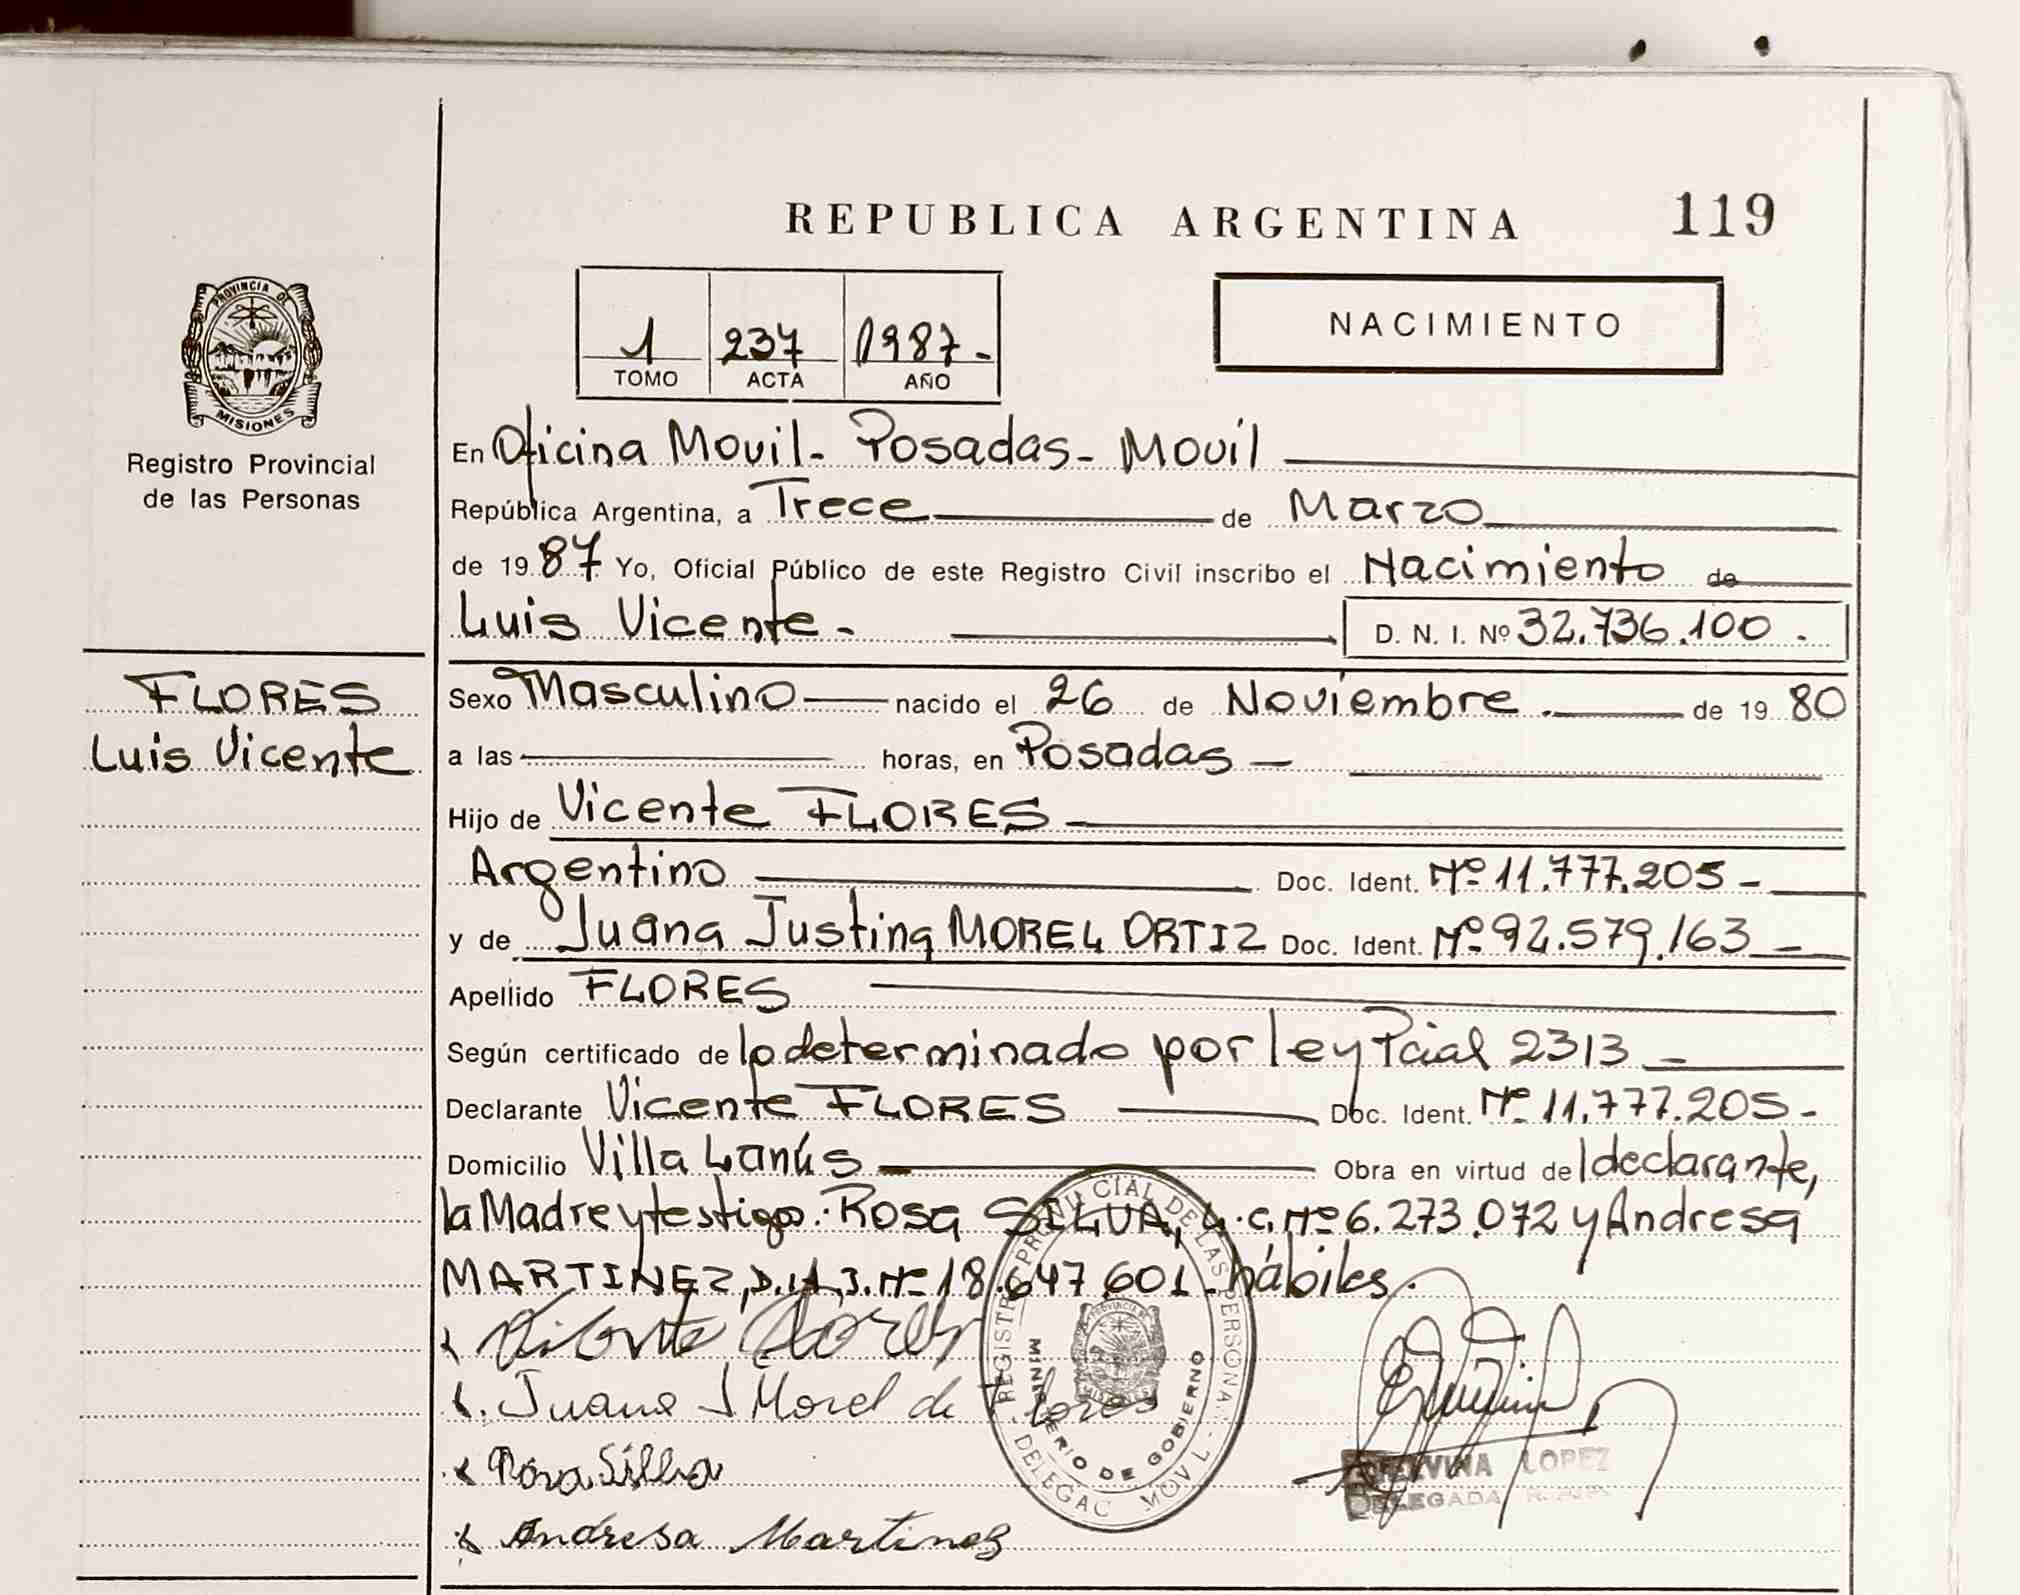 REPUBLICA ARGENTINA 119
PROVINCIA DE
MISIONES
Registro Provincial
de las Personas
1 237 1987.-
TOMO ACTA AÑO
NACIMIENTO
En Oficina Movil- Posadas- Movil
República Argentina, a Trece de Marzo
de 1987 Yo, Oficial Público de este Registro Civil inscribo el Nacimiento de
Luis Vicente.- D. N. I. Nº 32.736.100.
FLORES
Luis Vicente
Sexo Masculino nacido el 26 de Noviembre.- de 1980
a las horas, en Posadas
Hijo de Vicente FLORES
Argentino Doc. Ident. Nº 11.777.205-
y de Juana Justina MOREL ORTIZ Doc. Ident. Nº 92.579.163
Apellido FLORES
Según certificado de lo determinado por ley Pcial 2313
Declarante Vicente FLORES Doc. Ident. Nº 11.777.205-
Domicilio Villa Lanús Obra en virtud de l declarante,
la Madre y testigos: Rosa SILVA, L.C. Nº 6.273.072 y Andresa
MARTINEZ, D.N.I. Nº 18.647.601 hábiles.
Vicente Flores
Juana J Morel de Flores
Rosa Silba
Andresa Martinez
REGISTRO PROVINCIAL DE LAS PERSONAS
MINISTERIO DE GOBIERNO
DELEGAC MOVIL
LOPEZ
DELEGADA